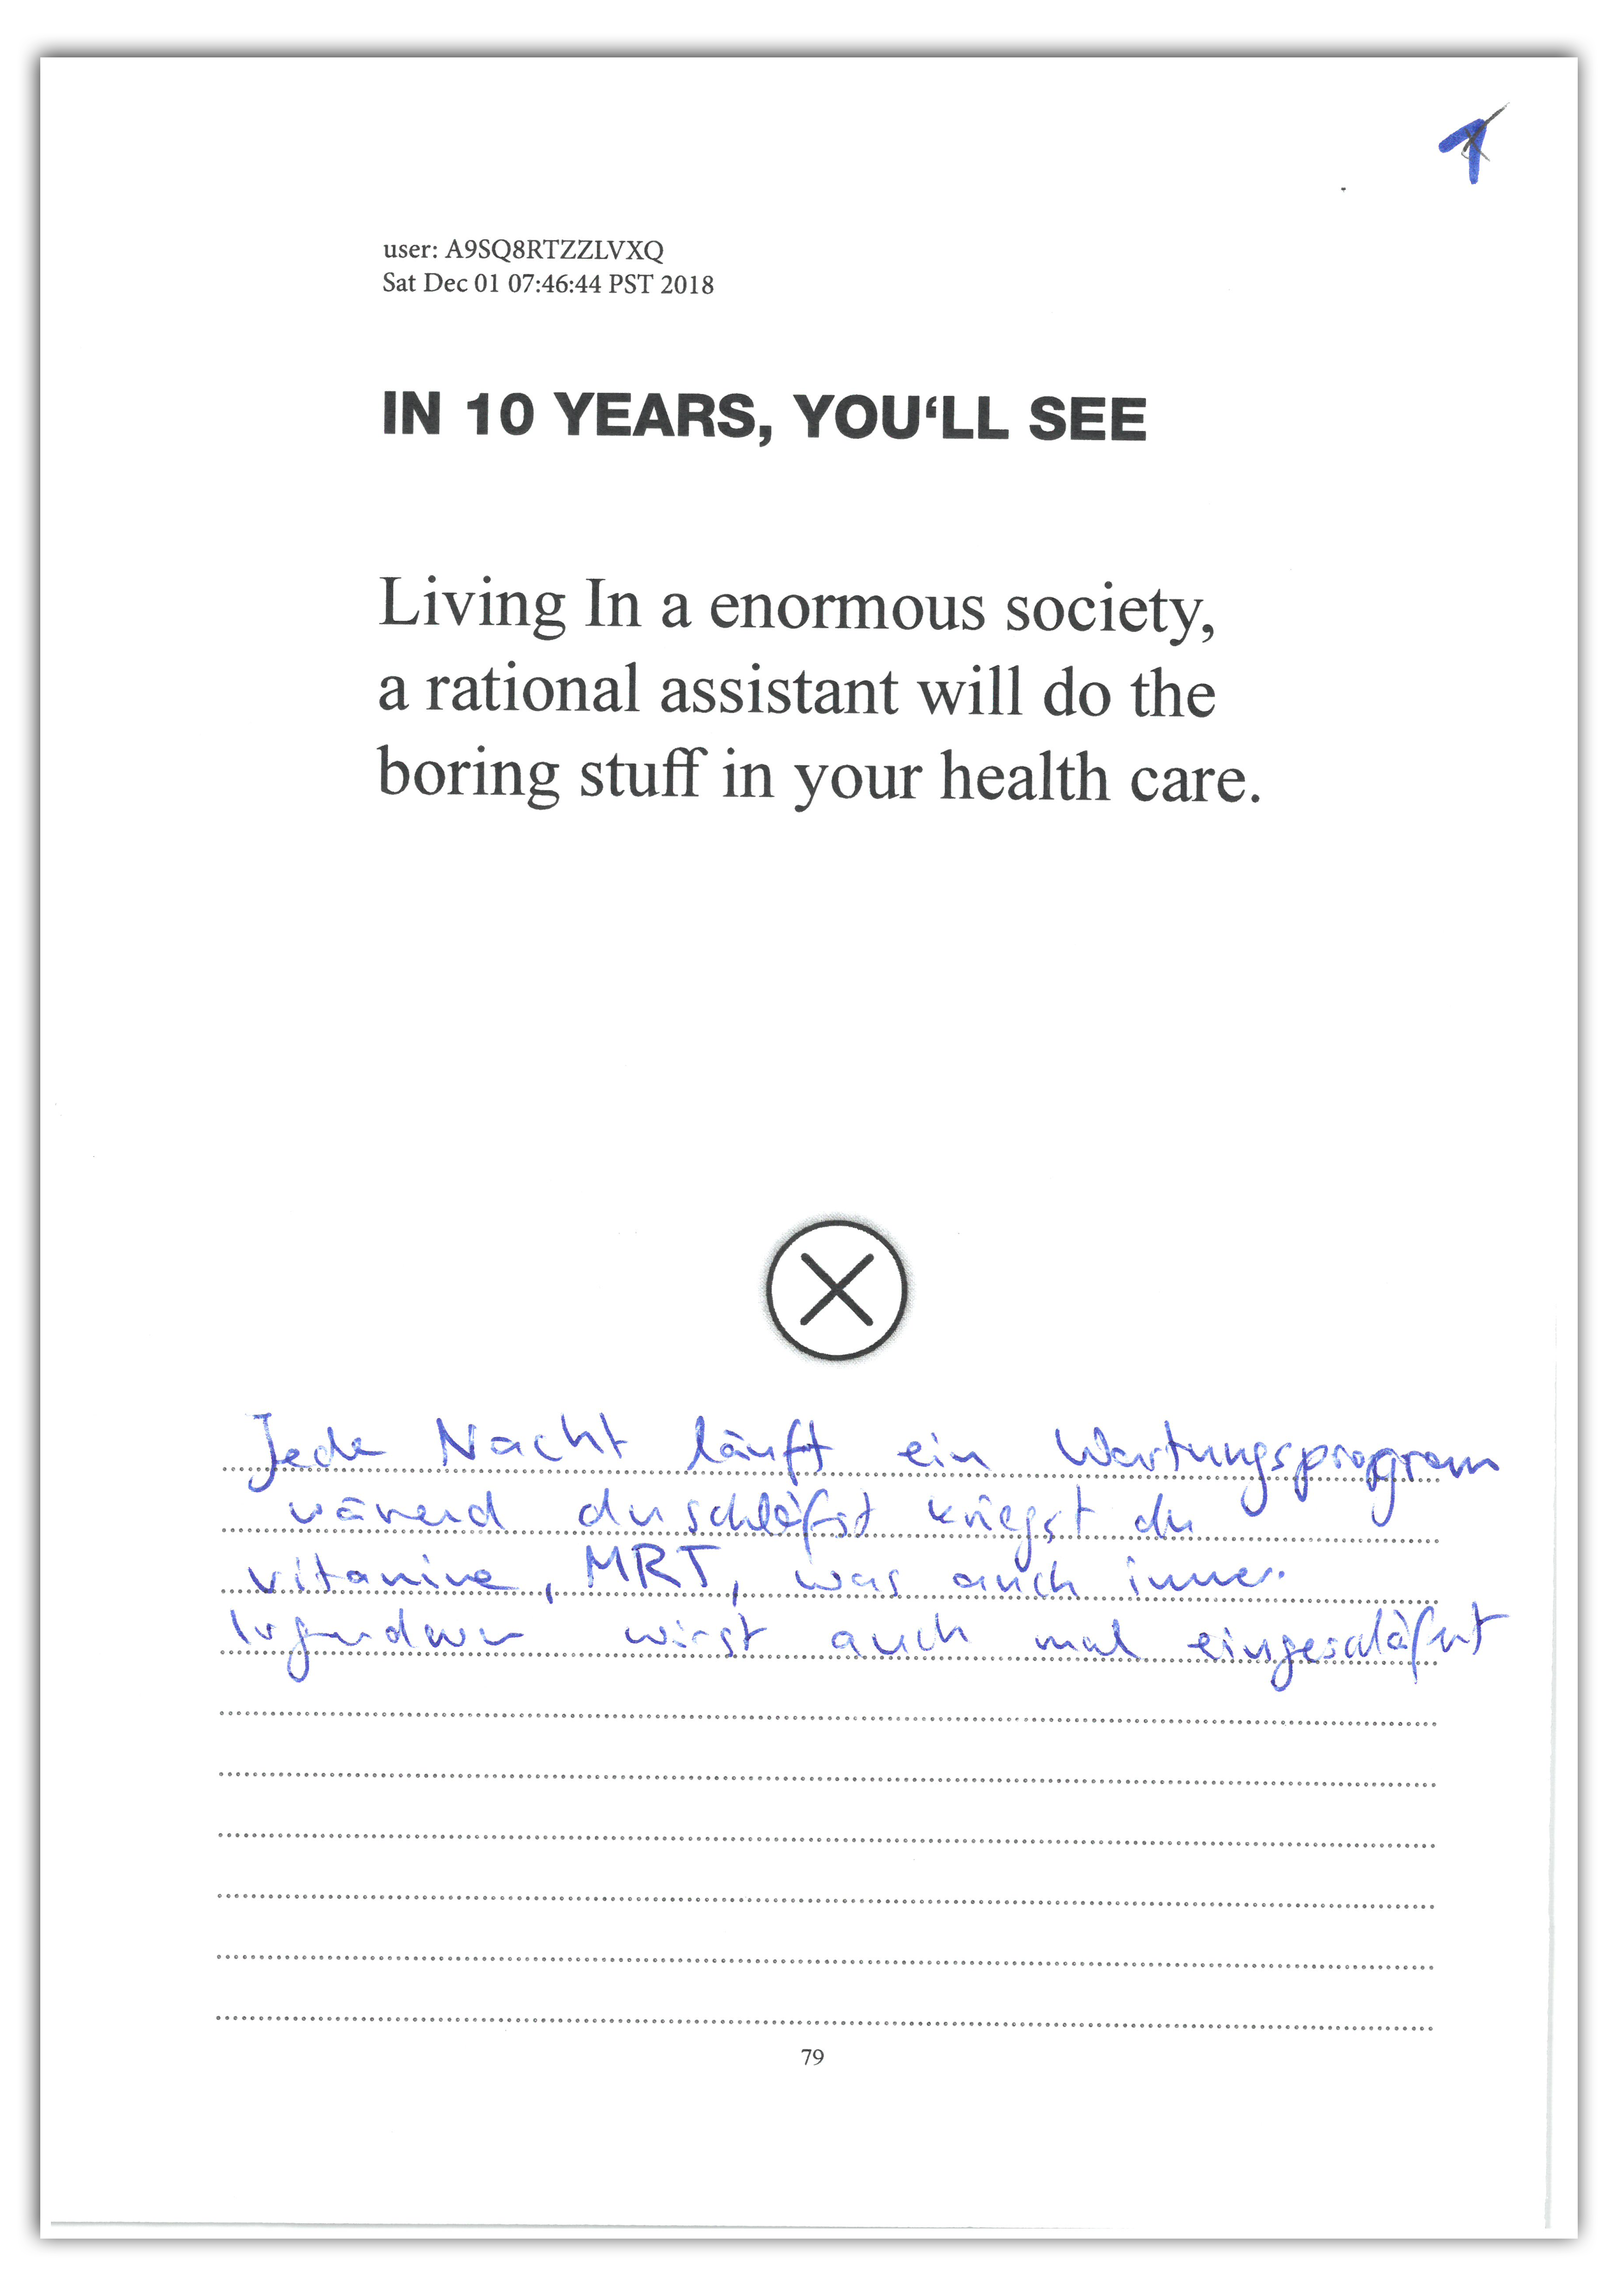 1
user: A9SQ8RTZZLVXQ
Sat Dec 01 07:46:44 PST 2018
IN 10 YEARS, YOU‘LL SEE
Living In a enormous society,
a rational assistant will do the
boring stuff in your health care.
Jede Nacht läuft ein Wartungsprogram
wärend du schläfst kriegst du
vitamine, MRT, was auch immer.
Irgendwann wirst auch mal eingeschläfert
79